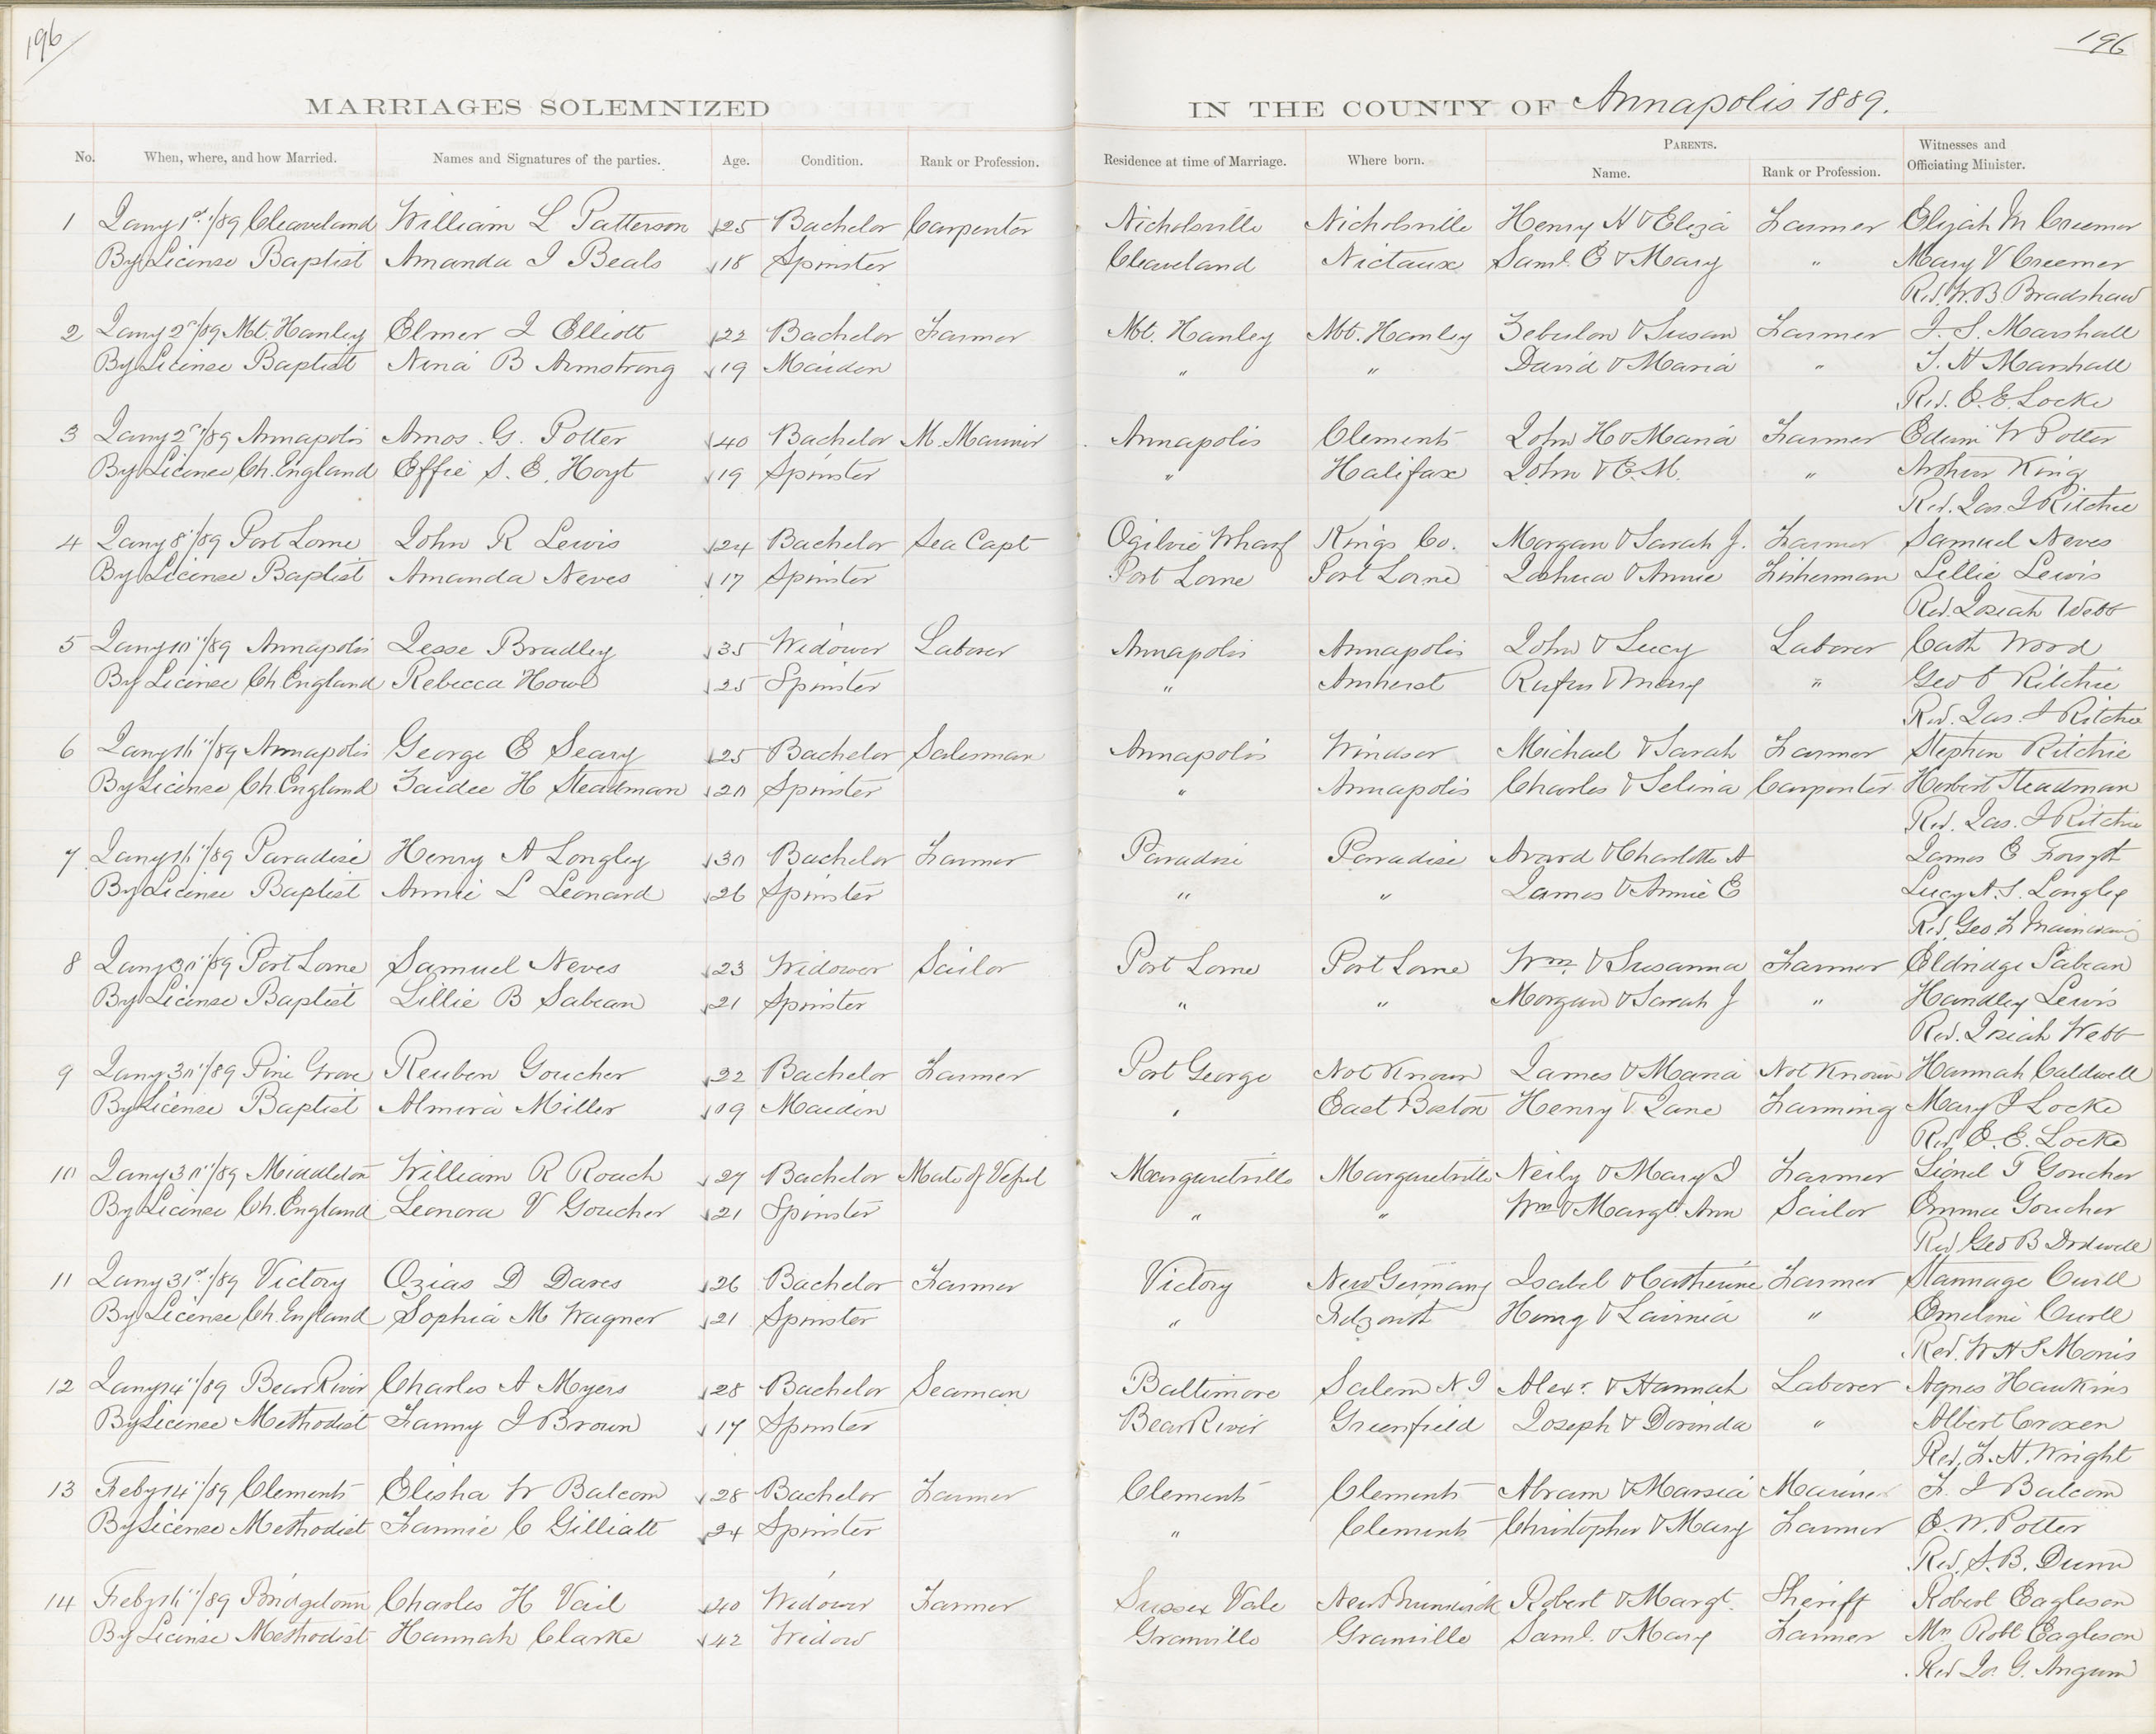 196
196
MARRIAGES SOLEMNIZED IN THE COUNTY OF Annapolis 1889.
No. When, where, and how Married. Names and Signatures of the parties. Age. Condition. Rank or Profession. Residence at time of Marriage. Where born. PARENTS. Name. Rank or Profession. Witnesses and Officiating Minister.
1 Jany 1st /89 Cleaveland William L Patterson 25 Bachelor Carpenter Nicholsville Nicholsville Henry H & Eliza Farmer Elijah M Creemer
By License Baptist Amanda J Beals 18 Spinster Cleaveland Nictaux Saml. E & Mary " Mary V Creemer
Rev. W. B Bradshaw
2 Jany 2nd /89 Mt. Hanley Elmer J Elliott 22 Bachelor Farmer Mt. Hanley Mt. Hanley Zebulon & Susan Farmer J. S. Marshall
By License Baptist Nina B Armstrong 19 Maiden " " David & Maria " J. H Marshall
Rev. E. E. Locke
3 Jany 2nd /89 Annapolis Amos. G. Potter 40 Bachelor M. Mariner Annapolis Clements John H & Maria Farmer Edwin W Potter
By License Ch. England Effie S. E. Hoyt 19 Spinster " Halifax John & E. M. " Arthur King
Rev. Jas. J Ritchie
4 Jany 8" /89 Port Lorne John R Lewis 24 Bachelor Sea Capt Ogilvie Wharf Kings Co. Morgan & Sarah J. Farmer Samuel Neves
By License Baptist Amanda Neves 17 Spinster Port Lorne Port Lorne Joshua & Annie Fisherman Lillie Lewis
Rev. Josiah Webb
5 Jany 10" /89 Annapolis Jesse Bradley 35 Widower Laborer Annapolis Annapolis John & Lucy Laborer Cath Wood
By License Ch England Rebecca Howe 25 Spinster " Amherst Rufus & Mary " Geo Ritchie
Rev. Jas. J Ritchie
6 Jany 16" /89 Annapolis George E Seary 25 Bachelor Salesman Annapolis Windsor Michael & Sarah Farmer Stephen Ritchie
By License Ch. England Zaidee H Steadman 20 Spinster " Annapolis Charles & Selina Carpenter Herbert Steadman
Rev. Jas. J Ritchie
7 Jany 16" /89 Paradise Henry A Longley 30 Bachelor Farmer Paradise Paradise Avard & Charlotte A James E Forsyth
By License Baptist Annie L Leonard 26 Spinster " " James & Annie E Lucy A. S. Longley
Rev. Geo. F Mainwaring
8 Jany 30" /89 Port Lorne Samuel Neves 23 Widower Sailor Port Lorne Port Lorne Wm. & Susanna Farmer Eldridge Sabean
By License Baptist Lillie B Sabean 21 Spinster " " Morgan & Sarah J " Handley Lewis
Rev. Josiah Webb
9 Jany 30" /89 Pine Grove Reuben Goucher 22 Bachelor Farmer Port George Not Known James & Maria Not Known Hannah Caldwell
By License Baptist Almira Miller 19 Maiden " East Boston Henry & Jane Farming Mary J Locke
Rev. E. E. Locke
10 Jany 30" /89 Middleton William R Roach 27 Bachelor Mate of Vessel Margaretville Margaretville Neily & Mary J Farmer Lionel T Goucher
By License Ch. England Leonora V Goucher 21 Spinster " " Wm & Margt. Ann Sailor Emma Goucher
Rev Geo B Dodwell
11 Jany 31st /89 Victory Ozias D Dares 26 Bachelor Farmer Victory New Germany Isabel & Catherine Farmer Stannage Curll
By License Ch. England Sophia M Wagner 21 Spinster " Henry & Lavinia " Emeline Curll
Rev. W H S Morris
12 Jany 14" /89 Bear River Charles A Myers 28 Bachelor Seaman Baltimore Salem N. J Alexr. & Hannah Laborer Agnes Hawkins
By License Methodist Fanny J Brown 17 Spinster Bear River Greenfield Joseph & Dorinda " Albert Croxen
Rev. F. H. Wright
13 Feby 14" /89 Clements Elisha W Balcom 28 Bachelor Farmer Clements Clements Abram & Marsia Mariner F. J Balcom
By License Methodist Fannie C Gilliatt 24 Spinster " Clements Christopher & Mary Farmer E. W. Potter
Rev. S. B. Dunn
14 Feby 16" /89 Bridgetown Charles H Vail 40 Widower Farmer Sussex Vale New Brunswick Robert & Margt. Sheriff Robert Eagleson
By License Methodist Hannah Clarke 42 Widow Granville Granville Saml. & Mary Farmer Mrs Robt Eagleson
Rev G. Angwin